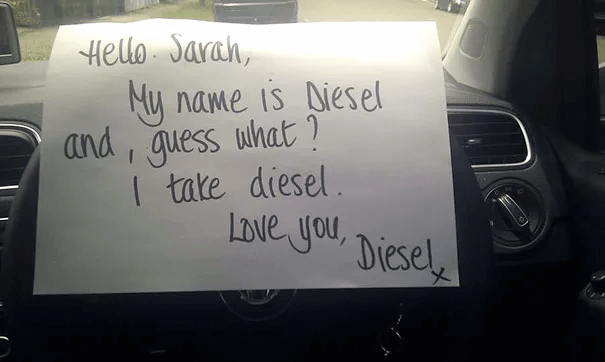 Hello. Sarah,
My name is Diesel
and, guess what?
I take diesel.
Love you,
Diesel x